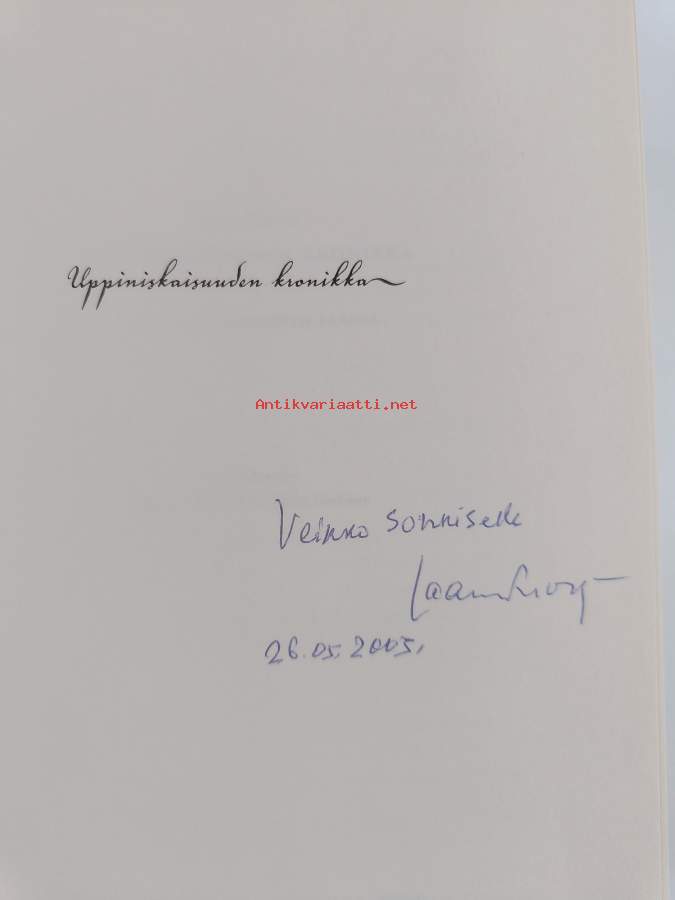 Uppiniskaisuuden kronikka
Antikvariaatti.net
Veikko Sonniselle
Jaan Kross
26.05.2005.